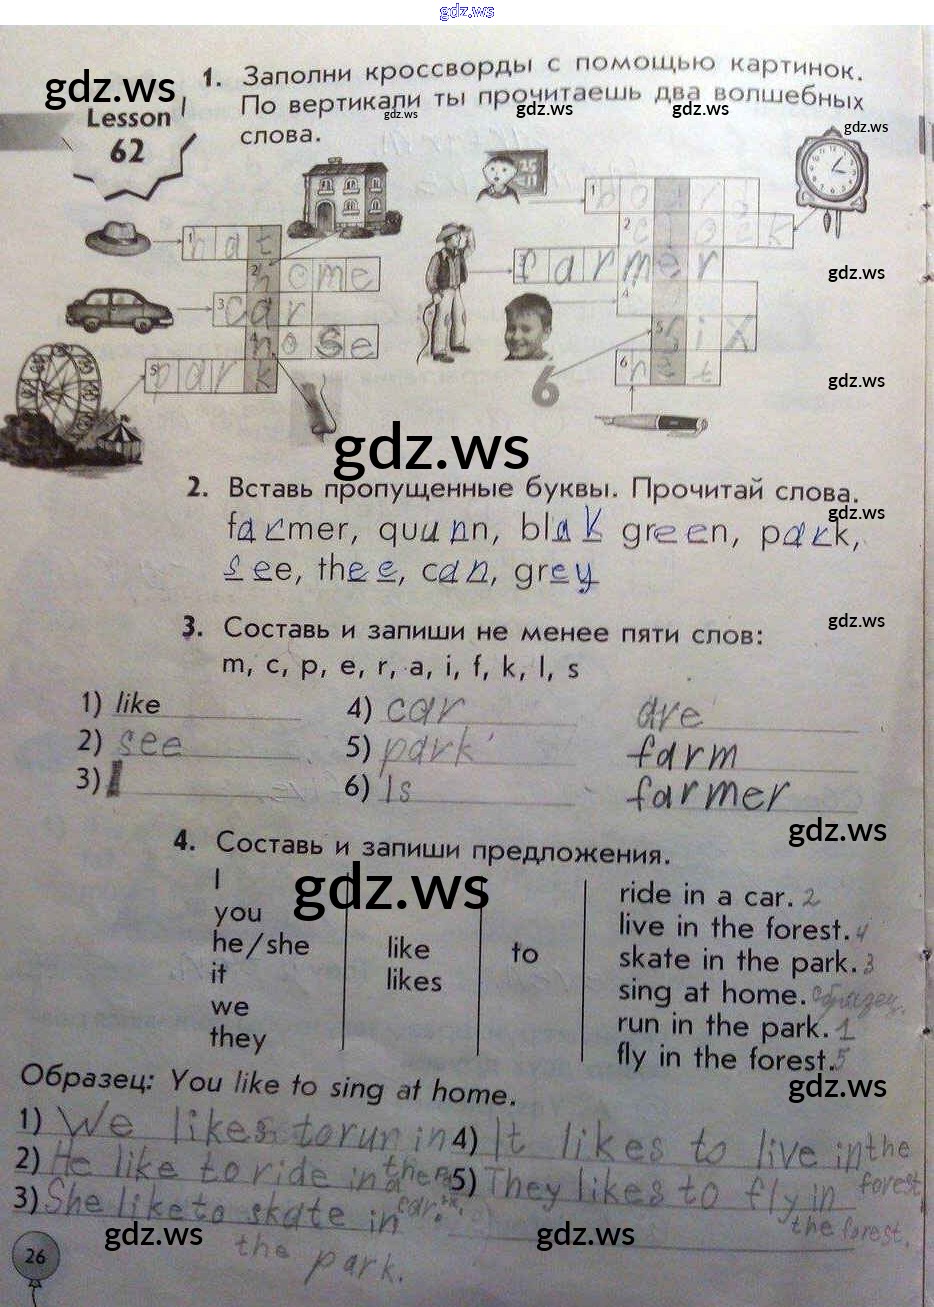 gdz.ws
gdz.ws
Lesson
62
1. Заполни кроссворды с помощью картинок.
По вертикали ты прочитаешь два волшебных
слова.
gdz.ws
gdz.ws
gdz.ws
gdz.ws
1 hat
2 home
3 car
4 nose
5 park
25
1 board
2 clock
3 farmer
4
5 six
6
6
gdz.ws
gdz.ws
gdz.ws
2. Вставь пропущенные буквы. Прочитай слова.
gdz.ws
farmer, quunn, blak green, park,
see, thee, can, grey
3. Составь и запиши не менее пяти слов:
gdz.ws
m, c, p, e, r, a, i, f, k, l, s
1) like 4) car are
2) see 5) park farm
3) I 6) Is farmer
gdz.ws
4. Составь и запиши предложения.
gdz.ws
I
you
he/she
it
we
they
like
likes
to
ride in a car. 2
live in the forest. 4
skate in the park. 3
sing at home. Образец.
run in the park. 1
fly in the forest. 5
gdz.ws
Образец: You like to sing at home.
1) We likes to run in
the park.
2) He like to ride in a
car.
3) She like to skate in
the park.
4) It likes to live in the
forest
5) They likes to fly in
the forest.
gdz.ws
gdz.ws
26